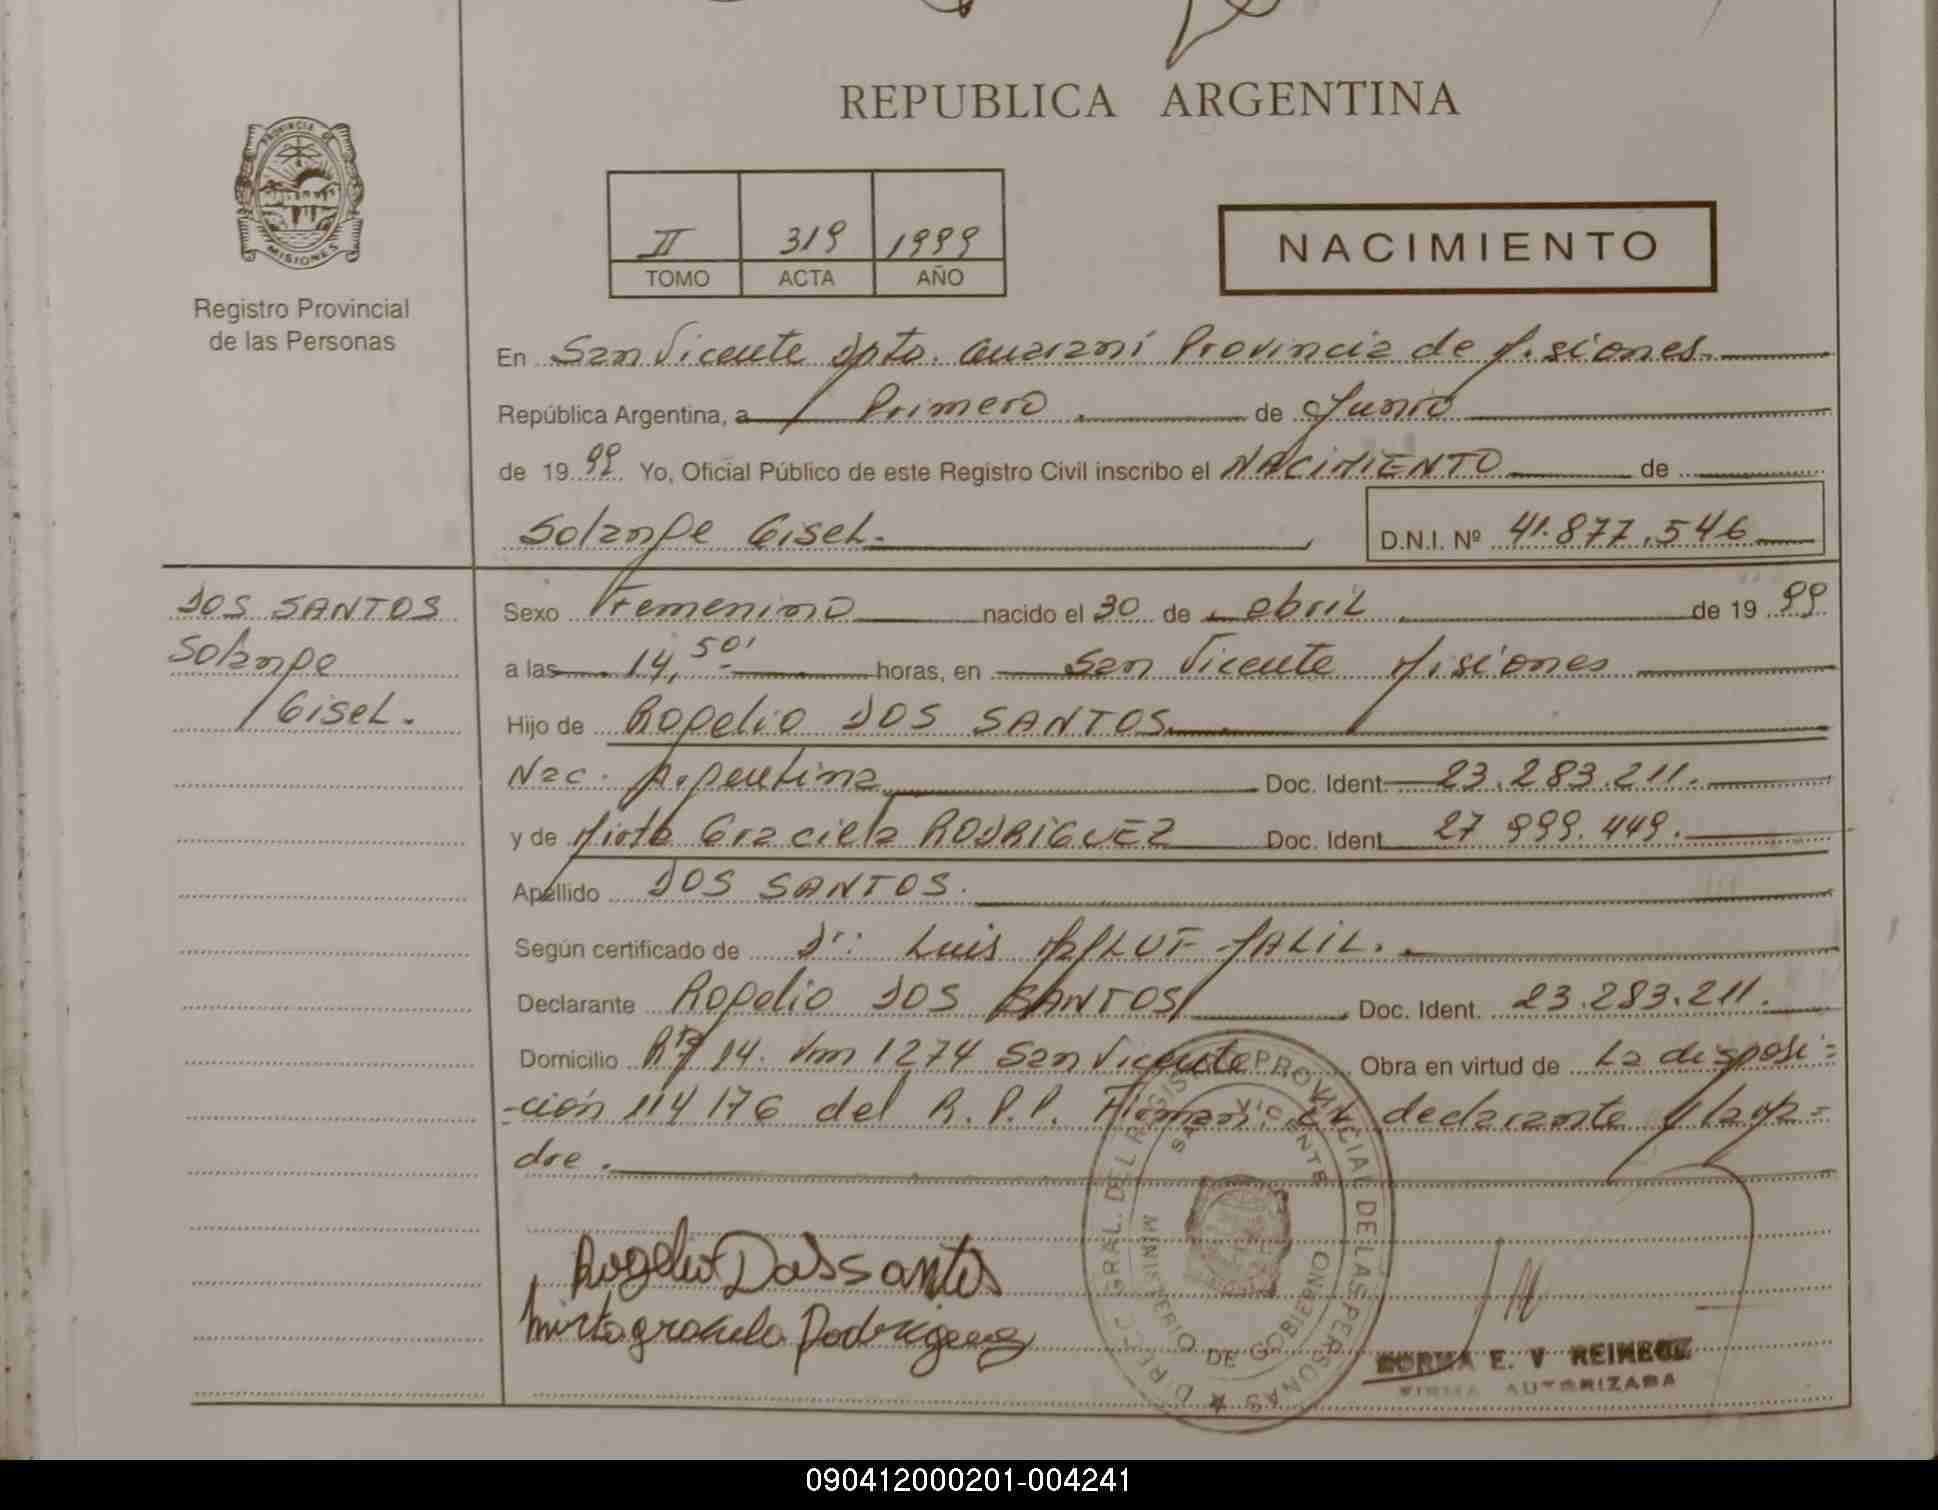 REPUBLICA ARGENTINA
PROVINCIA DE
MISIONES
Registro Provincial
de las Personas
II 319 1999
TOMO ACTA AÑO
NACIMIENTO
En San Vicente Dpto. Guaraní Provincia de Misiones.
República Argentina, a Primero de Junio
de 1999 Yo, Oficial Público de este Registro Civil inscribo el NACIMIENTO de
Solange Gisel.
D.N.I. Nº 41.877.546
DOS SANTOS
Solange
Gisel.
Sexo Femenino nacido el 30 de abril de 1999
a las 14,50' horas, en San Vicente Misiones
Hijo de Rogelio DOS SANTOS
Nac. Argentina Doc. Ident 23.283.211.
y de Mirta Graciela RODRIGUEZ Doc. Ident 27 999.449.
Apellido DOS SANTOS.
Según certificado de Dr: Luis JALIL.
Declarante Rogelio DOS SANTOS Doc. Ident. 23.283.211.
Domicilio 14. Km 1274 San Vicente Obra en virtud de La disposi=
-ción 114176 del R.P.P. Firman: el declarante y la ma=
dre.
Rogelio Dos santos
mirta graciela Rodriguez
DIRECC GRAL. DEL REGISTRO PROVINCIAL DE LAS PERSONAS
SAN VICENTE
MINISTERIO DE GOBIERNO
NORMA E. V
FIRMA AUTORIZADA
090412000201-004241